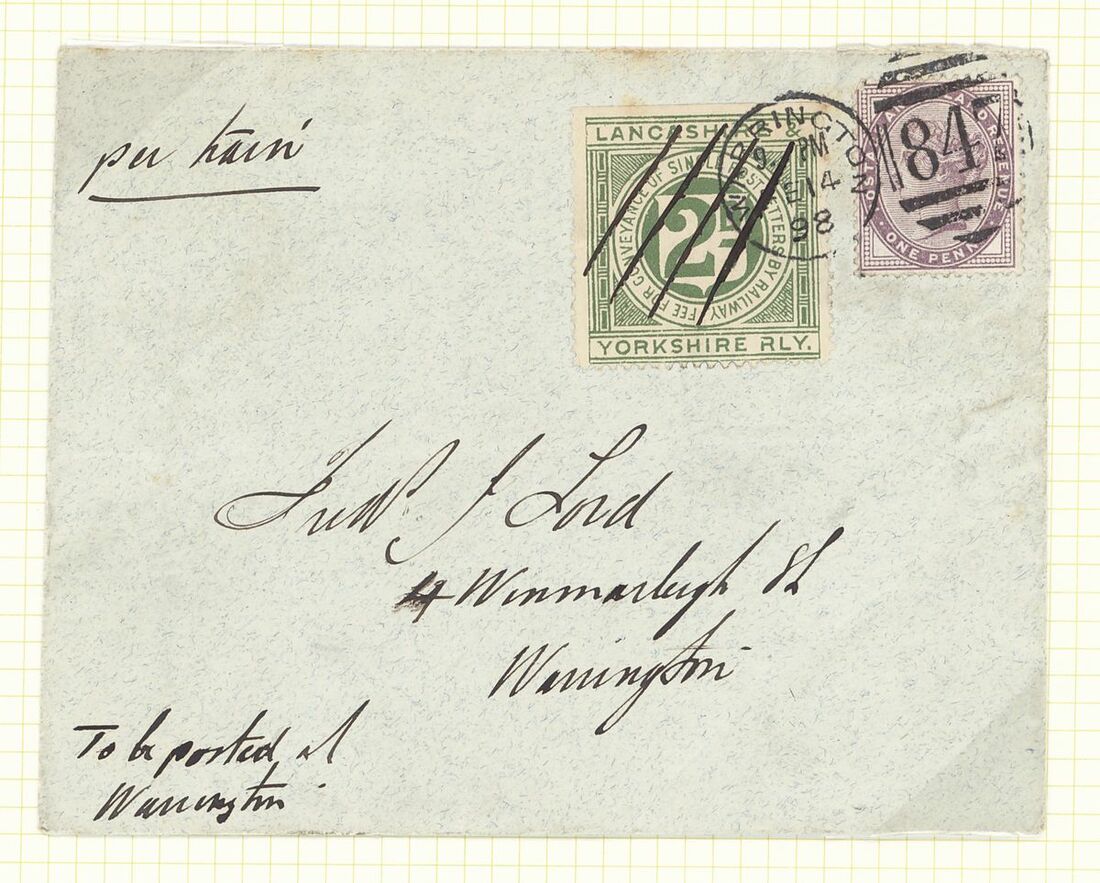 per train
LANCASHIRE &
FEE FOR CONVEYANCE OF SINGLE POST LETTERS BY RAILWAY
2D
YORKSHIRE RLY.
WARRINGTON
PM
SE 14
98
84
POSTAGE AND REVENUE
ONE PENNY
Fredk. J Lord
4 Winmarleigh St
Warrington
To be posted at
Warrington